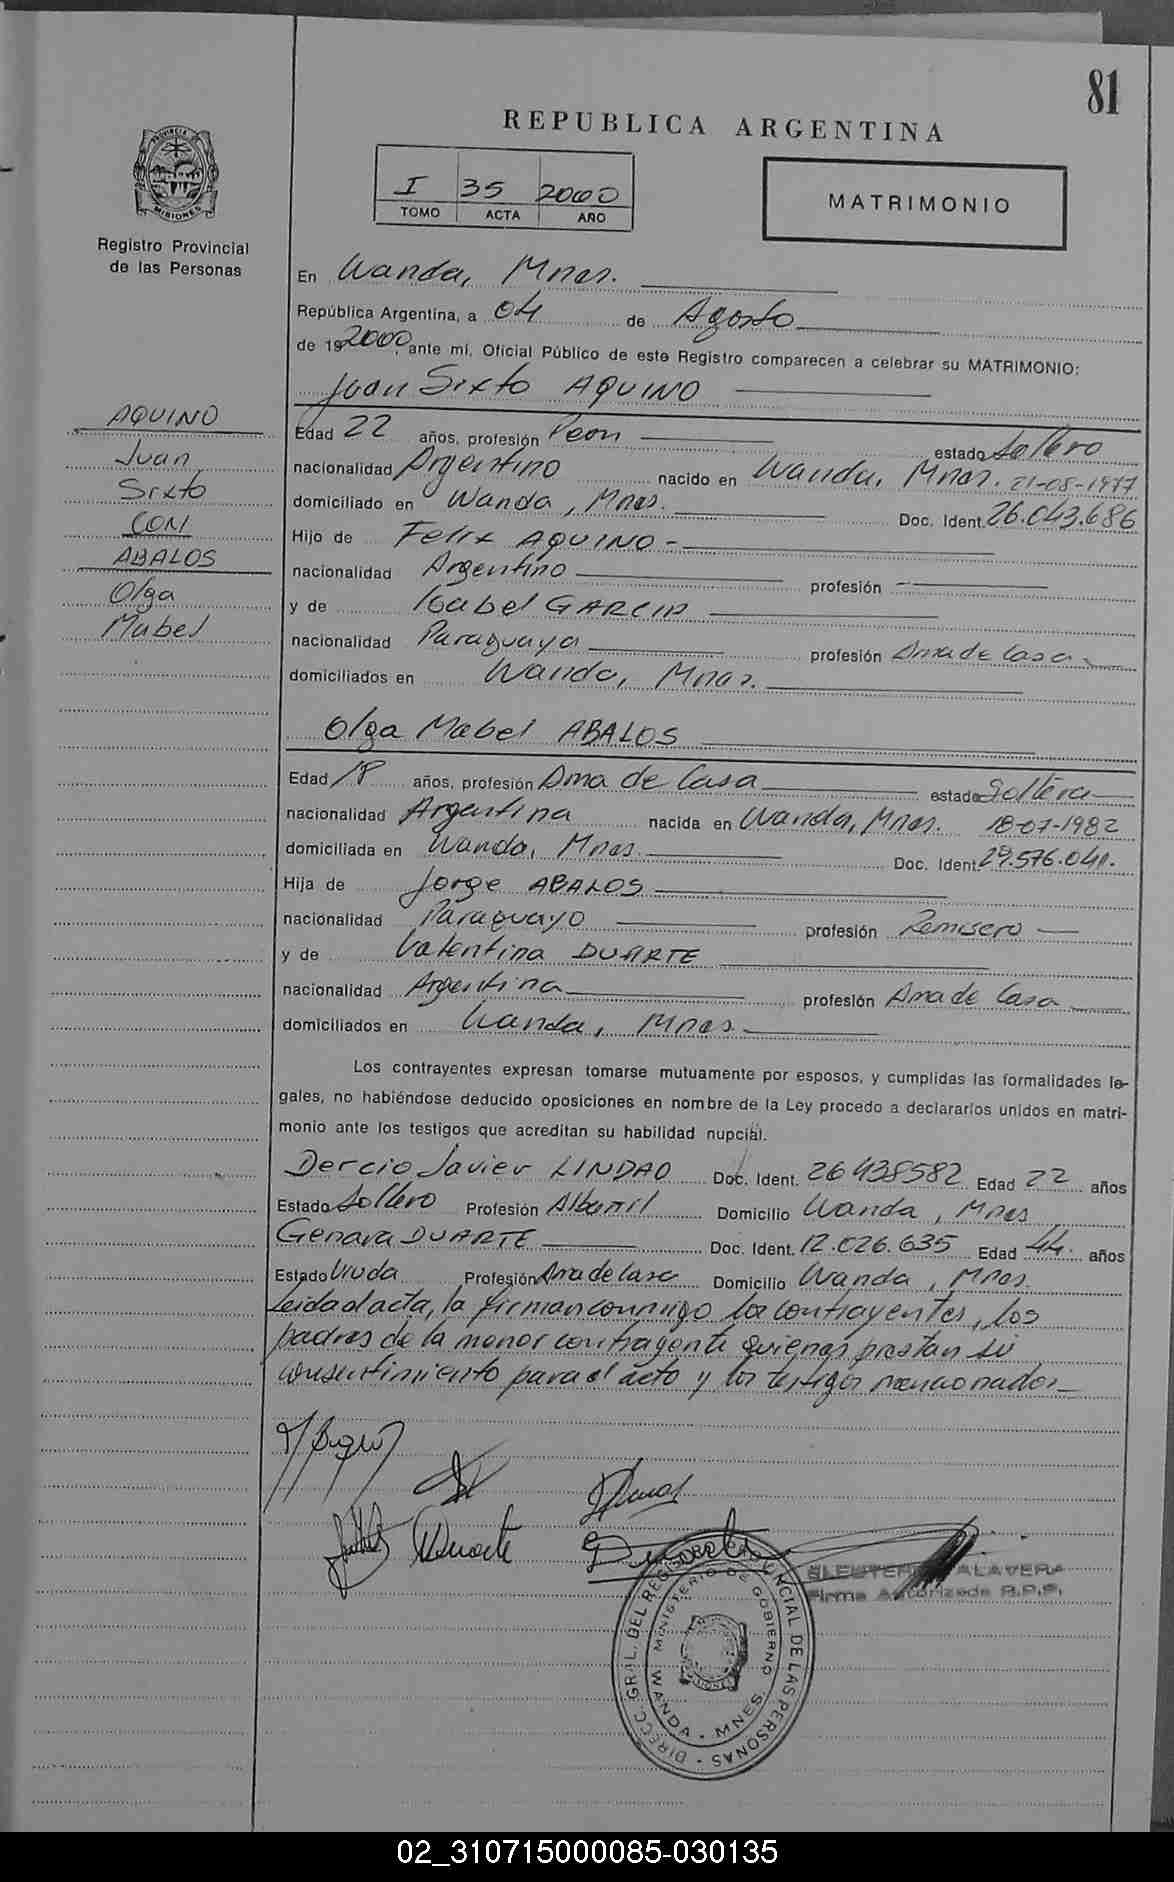 81
REPUBLICA ARGENTINA
PROVINCIA DE MISIONES
I 35 2000
TOMO ACTA AÑO
MATRIMONIO
Registro Provincial
de las Personas
En Wanda, Mnes.
República Argentina, a 04 de Agosto
de 192000, ante mí, Oficial Público de este Registro comparecen a celebrar su MATRIMONIO:
Juan Sixto AQUINO
AQUINO
Juan
Sixto
CON
ABALOS
Olga
Mabel
Edad 22 años, profesión Peon estado Soltero
nacionalidad Argentino nacido en Wanda, Mnes. 21-08-1977
domiciliado en Wanda, Mnes. Doc. Ident. 26.043.686
Hijo de Felix AQUINO-
nacionalidad Argentino profesión
y de Isabel GARCIA
nacionalidad Paraguaya profesión Ama de Casa
domiciliados en Wanda, Mnes.
Olga Mabel ABALOS
Edad 18 años, profesión Ama de Casa estado Soltera
nacionalidad Argentina nacida en Wanda, Mnes. 18-07-1982
domiciliada en Wanda, Mnes. Doc. Ident. 29.576.041.
Hija de Jorge ABALOS
nacionalidad Paraguayo profesión Remisero
y de Valentina DUARTE
nacionalidad Argentina profesión Ama de Casa
domiciliados en Wanda, Mnes.
Los contrayentes expresan tomarse mutuamente por esposos, y cumplidas las formalidades le-
gales, no habiéndose deducido oposiciones en nombre de la Ley procedo a declararlos unidos en matri-
monio ante los testigos que acreditan su habilidad nupcial.
Dercio Javier LINDAO Doc. Ident. 26438582 Edad 22 años
Estado Soltero Profesión Albañil Domicilio Wanda, Mnes
Genara DUARTE Doc. Ident. 12.026.635 Edad 44. años
Estado Viuda Profesión Ama de casa Domicilio Wanda, Mnes.
Leida el acta, la firman conmigo los contrayentes, los
padres de la menor contrayente quienes prestan su
consentimiento para el acto y los testigos mencionados
Duarte
ELEUTERIO TALAVERA
Firma Autorizada R.P.P.
DIRECC. GRAL. DEL REGISTRO PROVINCIAL DE LAS PERSONAS
MINISTERIO DE GOBIERNO
WANDA - MNES.
02_310715000085-030135